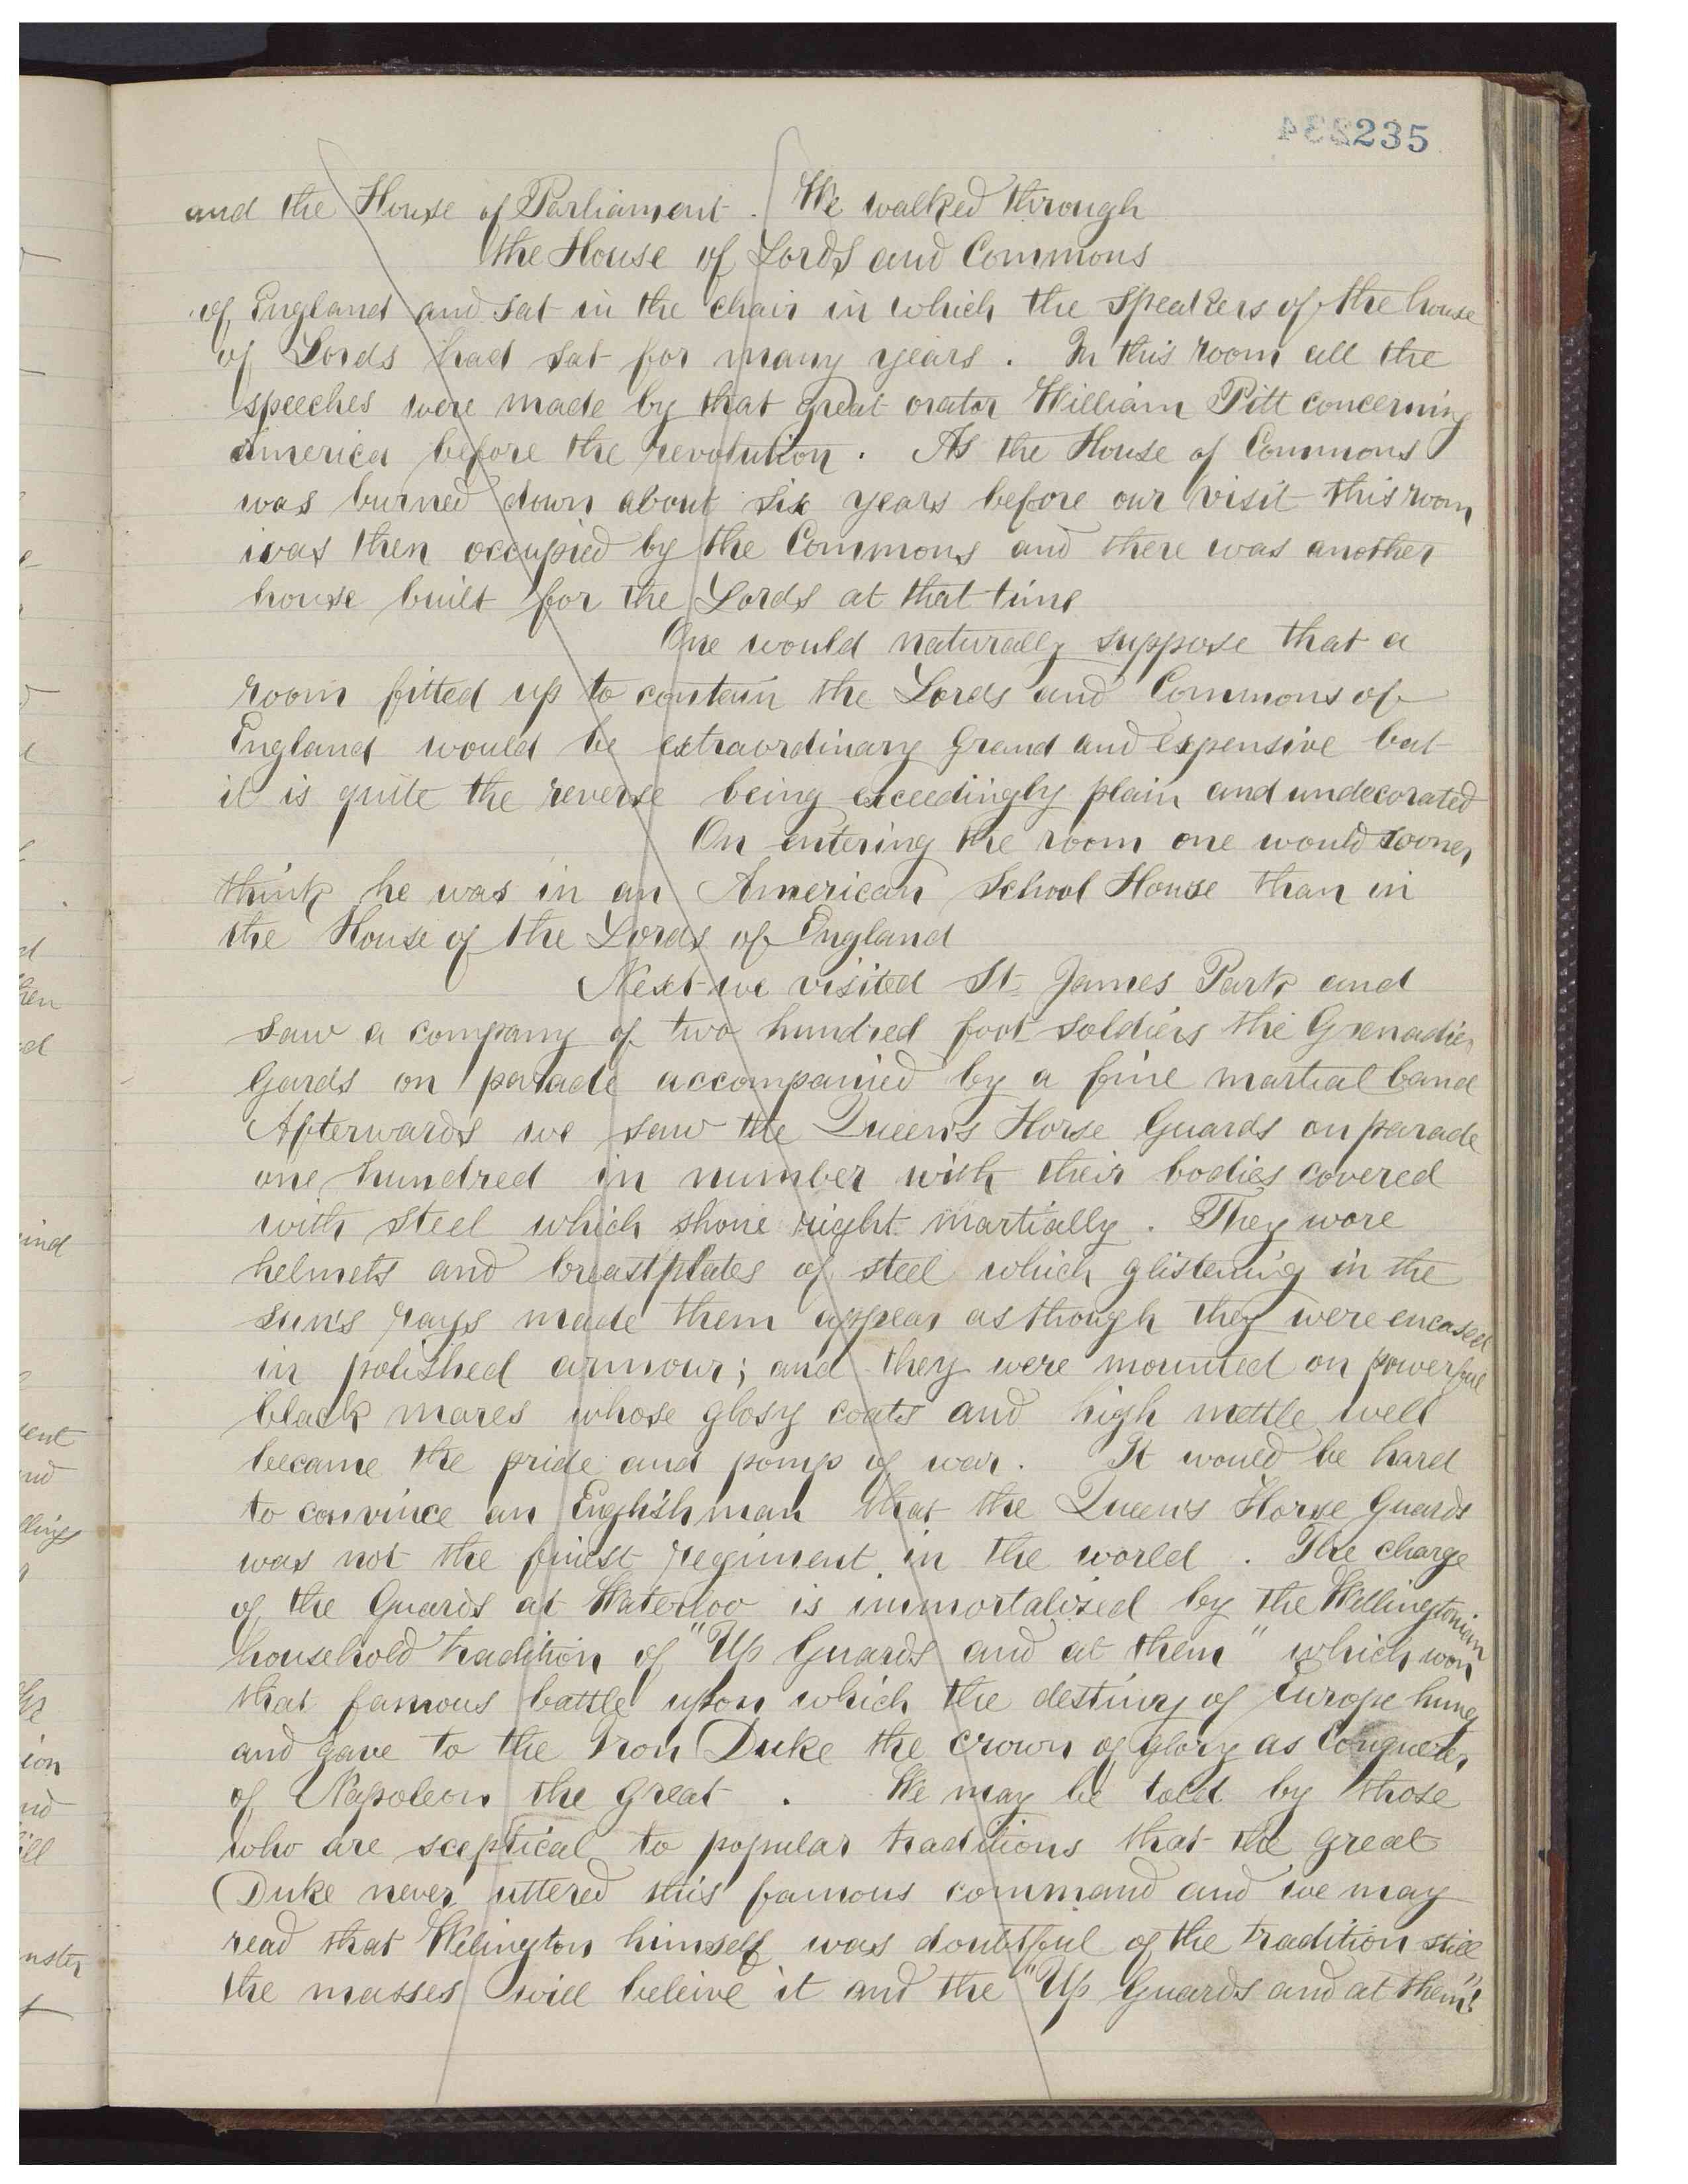 235
and the House of Parliament. We walked through
the House of Lords and Commons
of England and sat in the chair in which the Speakers of the house
of Lords had sat for many years. In this room all the
speeches were made by that great orator William Pitt concerning
America before the revolution. As the House of Commons
was burned down about six years before our visit this room
was then occupied by the Commons and there was another
house built for the Lords at that time
One would naturally suppose that a
room fitted up to contain the Lords and Commons of
England would be extraordinary grand and expensive but
it is quite the reverse being exceedingly plain and undecorated
On entering the room one would sooner
think he was in an American School House than in
the House of the Lords of England
Next we visited St James Park and
saw a company of two hundred foot soldiers the Grenadier
Gards on parade accompanied by a fine martial band
Afterwards we saw the Queen's Horse Guards on parade
one hundred in number with their bodies covered
with steel which shone right martially. They wore
helmets and breastplates of steel which glistening in the
sun's rays made them appear as though they were encased
in polished armour; and they were mounted on powerful
black mares whose glosy coats and high mettle well
became the pride and pomp of war. It would be hard
to convince an Englishman that the Queen's Horse Guards
was not the finest regiment in the world. The charge
of the Guards at Waterloo is immortalized by the Wellingtonian
household tradition of "Up Guards and at them" which won
that famous battle upon which the destiny of Europe hung
and gave to the Iron Duke the crown of glory as Conqueror
of Napoleon the great. We may be told by those
who are sceptical to popular traditions that the great
Duke never uttered this famous command and we may
read that Welington himself was doubtful of the tradition still
the masses will beleive it and the "Up Guards and at them"
ind
ion
nster